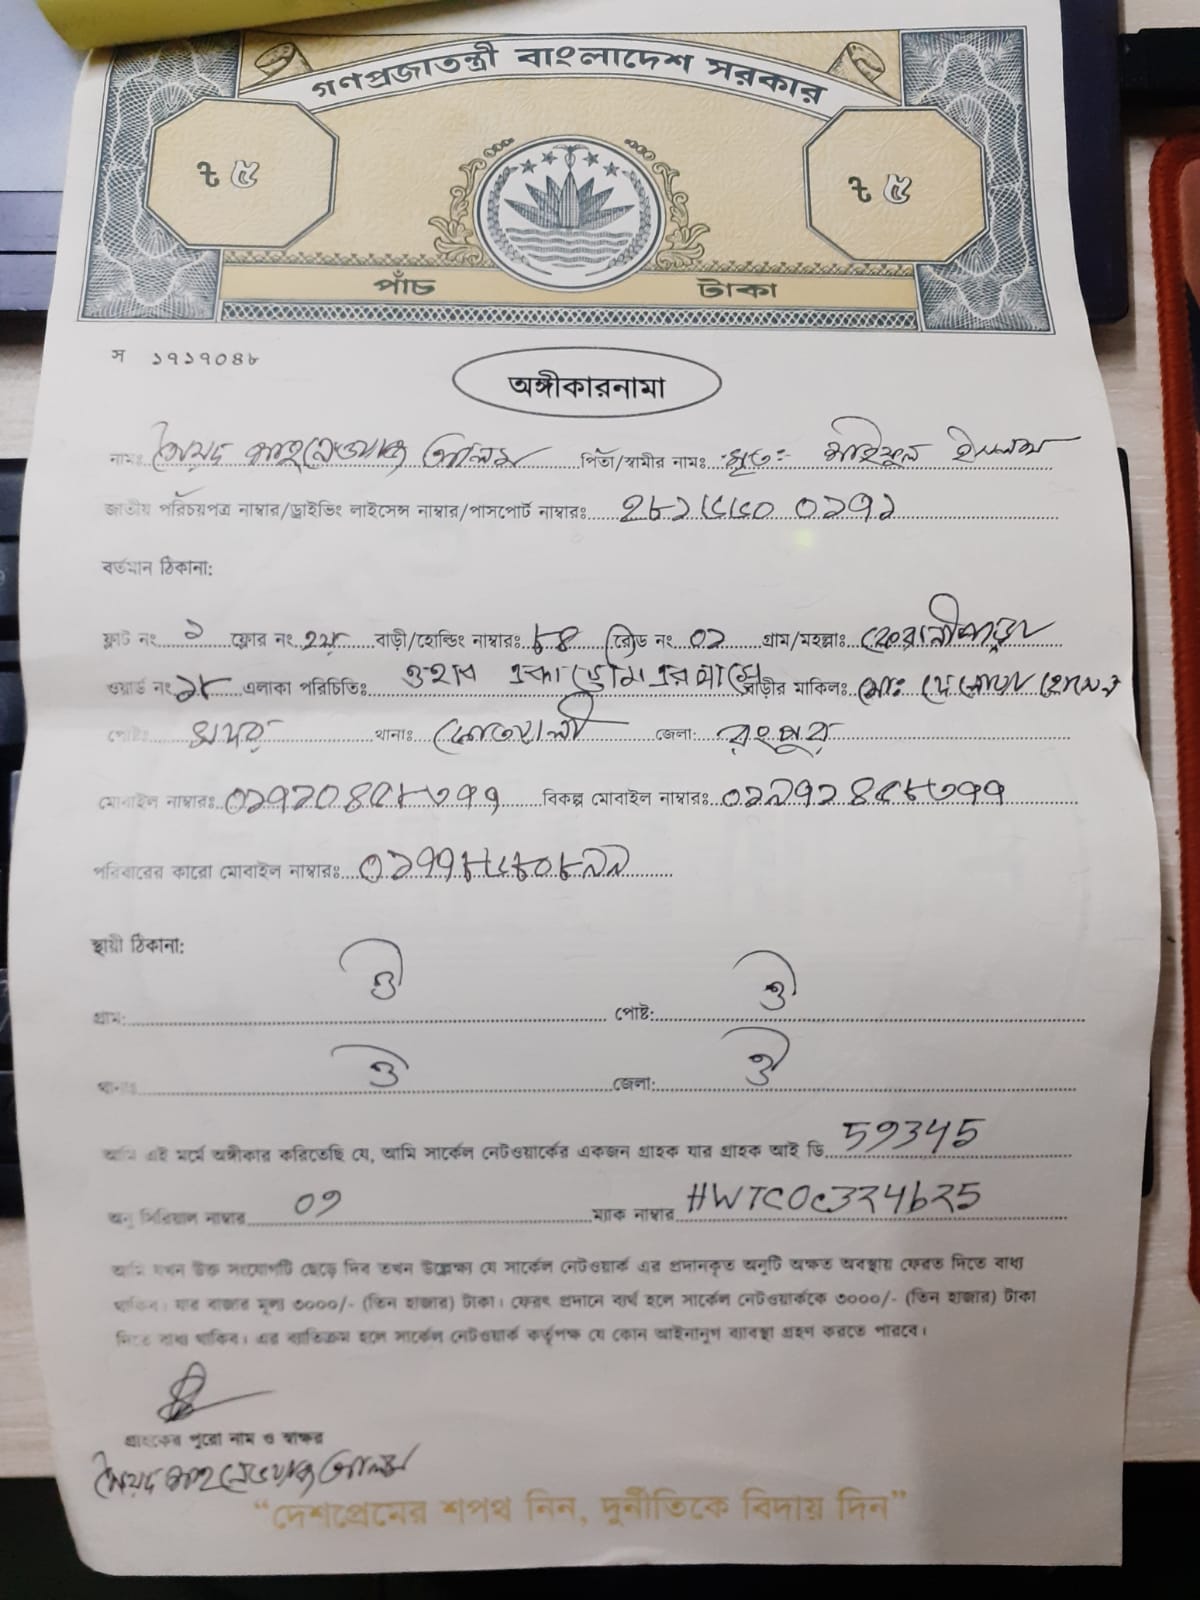 গণপ্রজাতন্ত্রী বাংলাদেশ সরকার
৳ ৫ ৳ ৫
পাঁচ টাকা
স ১৭১৭০৪৮
অঙ্গীকারনামা
নামঃ সৈয়দ শাহনেওয়াজ আলম পিতা/স্বামীর নামঃ মৃতঃ সাইফুল ইসলাম
জাতীয় পরিচয়পত্র নাম্বার/ড্রাইভিং লাইসেন্স নাম্বার/পাসপোর্ট নাম্বারঃ
বর্তমান ঠিকানা:
ফ্লাট নং ১ ফ্লোর নং ২য় বাড়ী/হোল্ডিং নাম্বারঃ ৮৪ রোড নং ০১ গ্রাম/মহল্লাঃ কেরানীপাড়া
ওয়ার্ড নং ১৮ এলাকা পরিচিতিঃ ওহাব একাডেমি এর পাশে বাড়ীর মাকিলঃ মোঃ হোসেন
পোষ্টঃ সদর থানাঃ কোতয়ালী জেলা: রংপুর
মোবাইল নাম্বারঃ বিকল্প মোবাইল নাম্বারঃ
পরিবারের কারো মোবাইল নাম্বারঃ
স্থায়ী ঠিকানা:
গ্রাম: ঐ পোষ্ট: ঐ
থানাঃ ঐ জেলা: ঐ
আমি এই মর্মে অঙ্গীকার করিতেছি যে, আমি সার্কেল নেটওয়ার্কের একজন গ্রাহক যার গ্রাহক আই ডি 59345
অনু সিরিয়াল নাম্বার 09 ম্যাক নাম্বার HWTC0c324b25
আমি যখন উক্ত সংযোগটি ছেড়ে দিব তখন উল্লেক্ষা যে সার্কেল নেটওয়ার্ক এর প্রদানকৃত অনুটি অক্ষত অবস্থায় ফেরত দিতে বাধ্য
থাকিব। যার বাজার মূল্য ৩০০০/- (তিন হাজার) টাকা। ফেরৎ প্রদানে ব্যর্থ হলে সার্কেল নেটওয়ার্ককে ৩০০০/- (তিন হাজার) টাকা
দিতে বাধ্য থাকিব। এর ব্যতিক্রম হলে সার্কেল নেটওয়ার্ক কর্তৃপক্ষ যে কোন আইনানুগ ব্যাবস্থা গ্রহণ করতে পারবে।
গ্রাহকের পুরো নাম ও স্বাক্ষর
সৈয়দ শাহনেওয়াজ আলম
“দেশপ্রেমের শপথ নিন, দুর্নীতিকে বিদায় দিন”